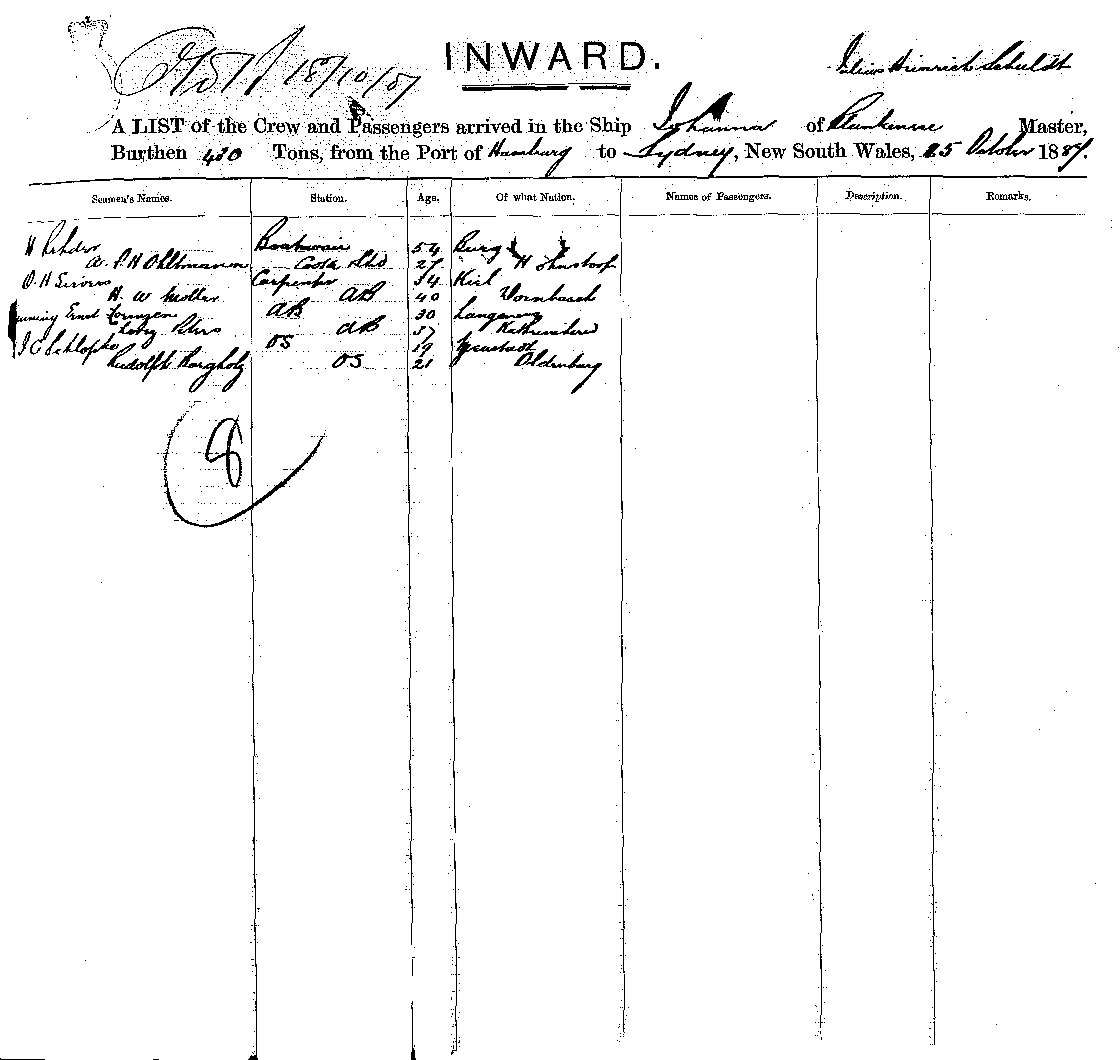 18/10/87
INWARD.
Julius Heinrich Schuldt
A LIST of the Crew and Passengers arrived in the Ship Johanna of Blankenese Master,
Burthen 430 Tons, from the Port of Hamburg to Sydney, New South Wales, 25 October 1887.
Seamen's Names. Station. Age. Of what Nation. Names of Passengers. Description. Remarks.
H Rehder 54 Burg
A. P. H Ohltmann Cook Std 27
O. H Sievers Carpenter 34 Kiel
H. W Moller AB 40
Ernst Lorenzen AB 30
AB 57
J C Schlopke OS 19 Neustadt
Rudolph Bargholz OS 21 Oldenburg
8